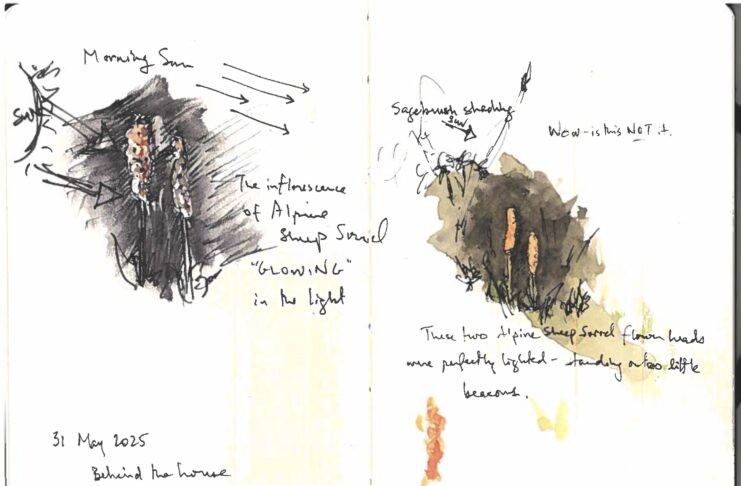 Morning Sun
Sun
The inflorescence
of Alpine
sheep Sorrel
"GLOWING"
in the light
31 May 2025
Behind the house
Sagebrush shading
sun
Wow - is this NOT it.
These two Alpine sheep sorrel flower heads
were perfectly lighted - standing out as little
beacons.